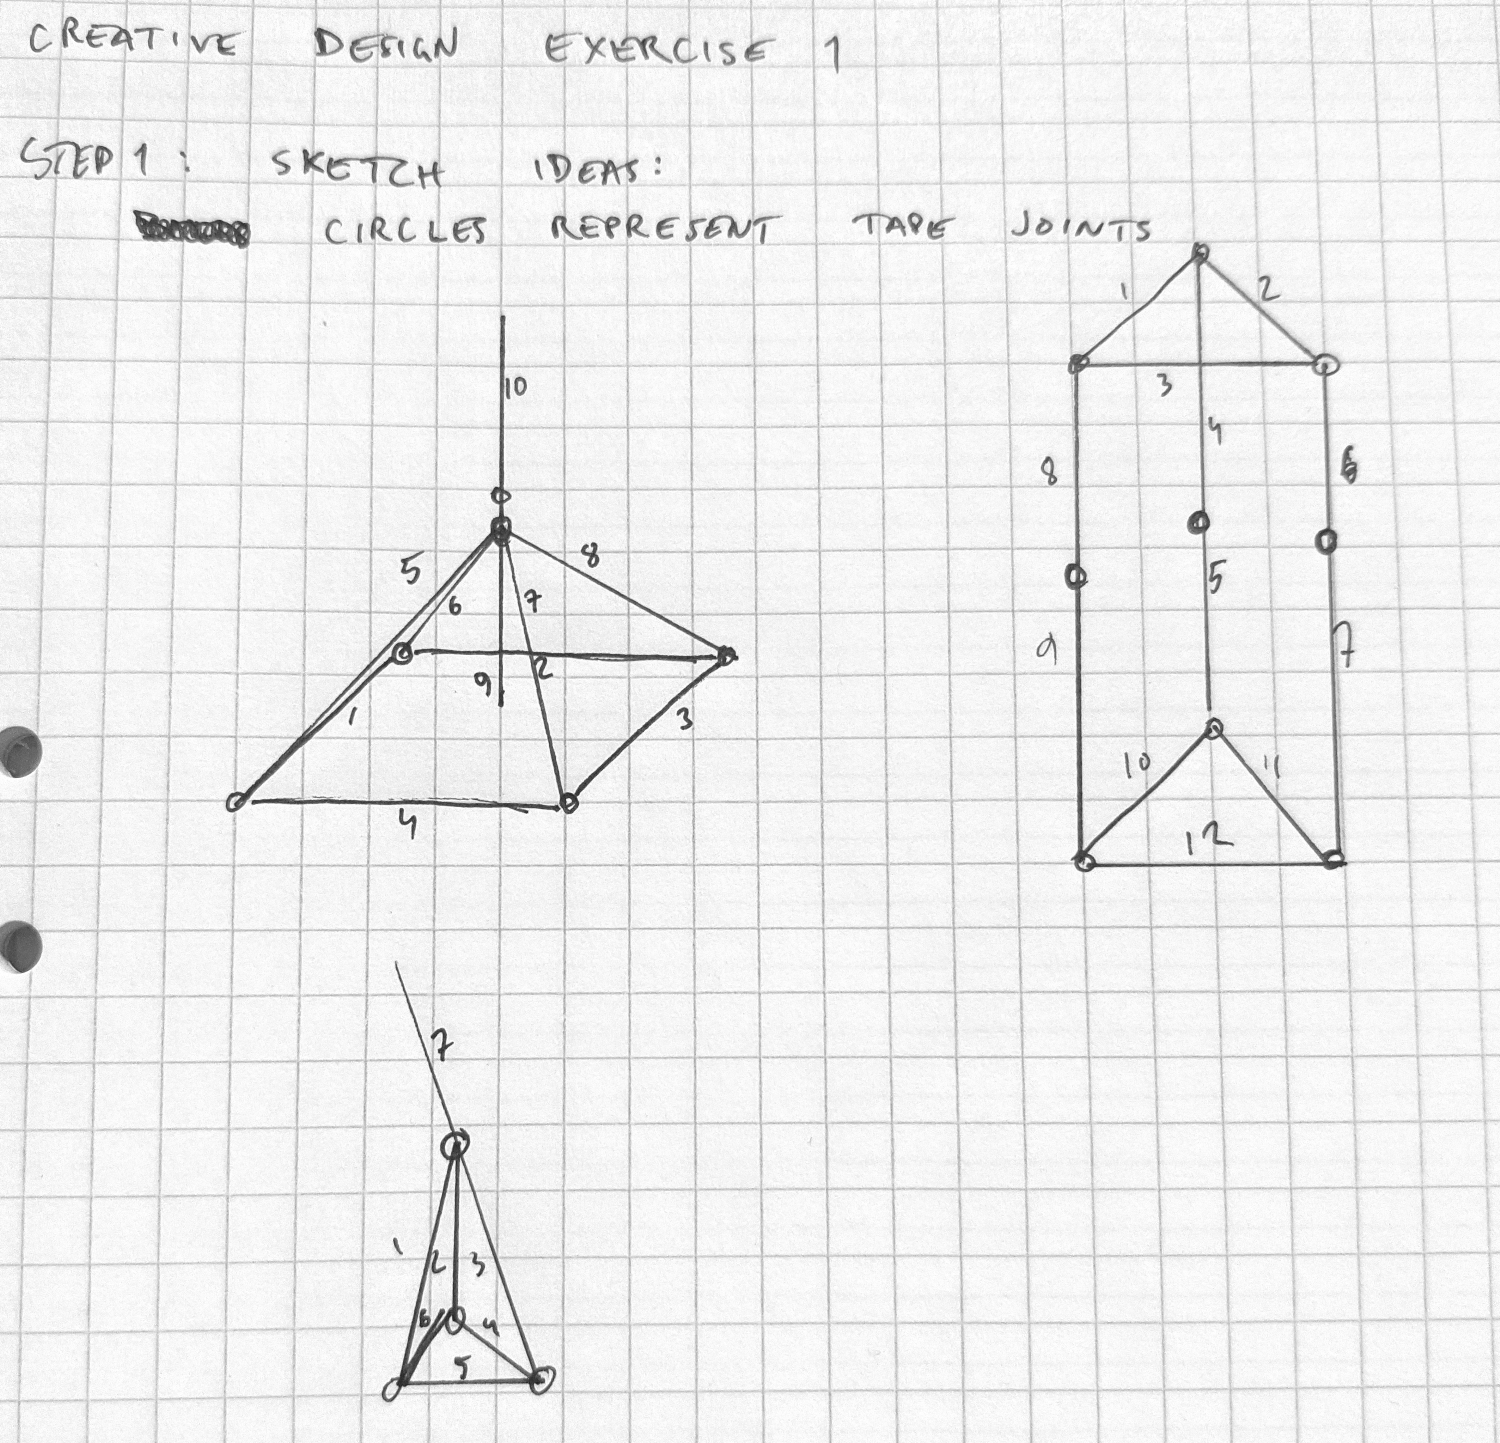 CREATIVE DESIGN EXERCISE 1
STEP 1: SKETCH IDEAS:
CIRCLES REPRESENT TAPE JOINTS
10
5
6
7
8
9
2
1
3
4
1
2
3
4
8
6
5
9
7
10
11
12
7
1
2
3
6
4
5